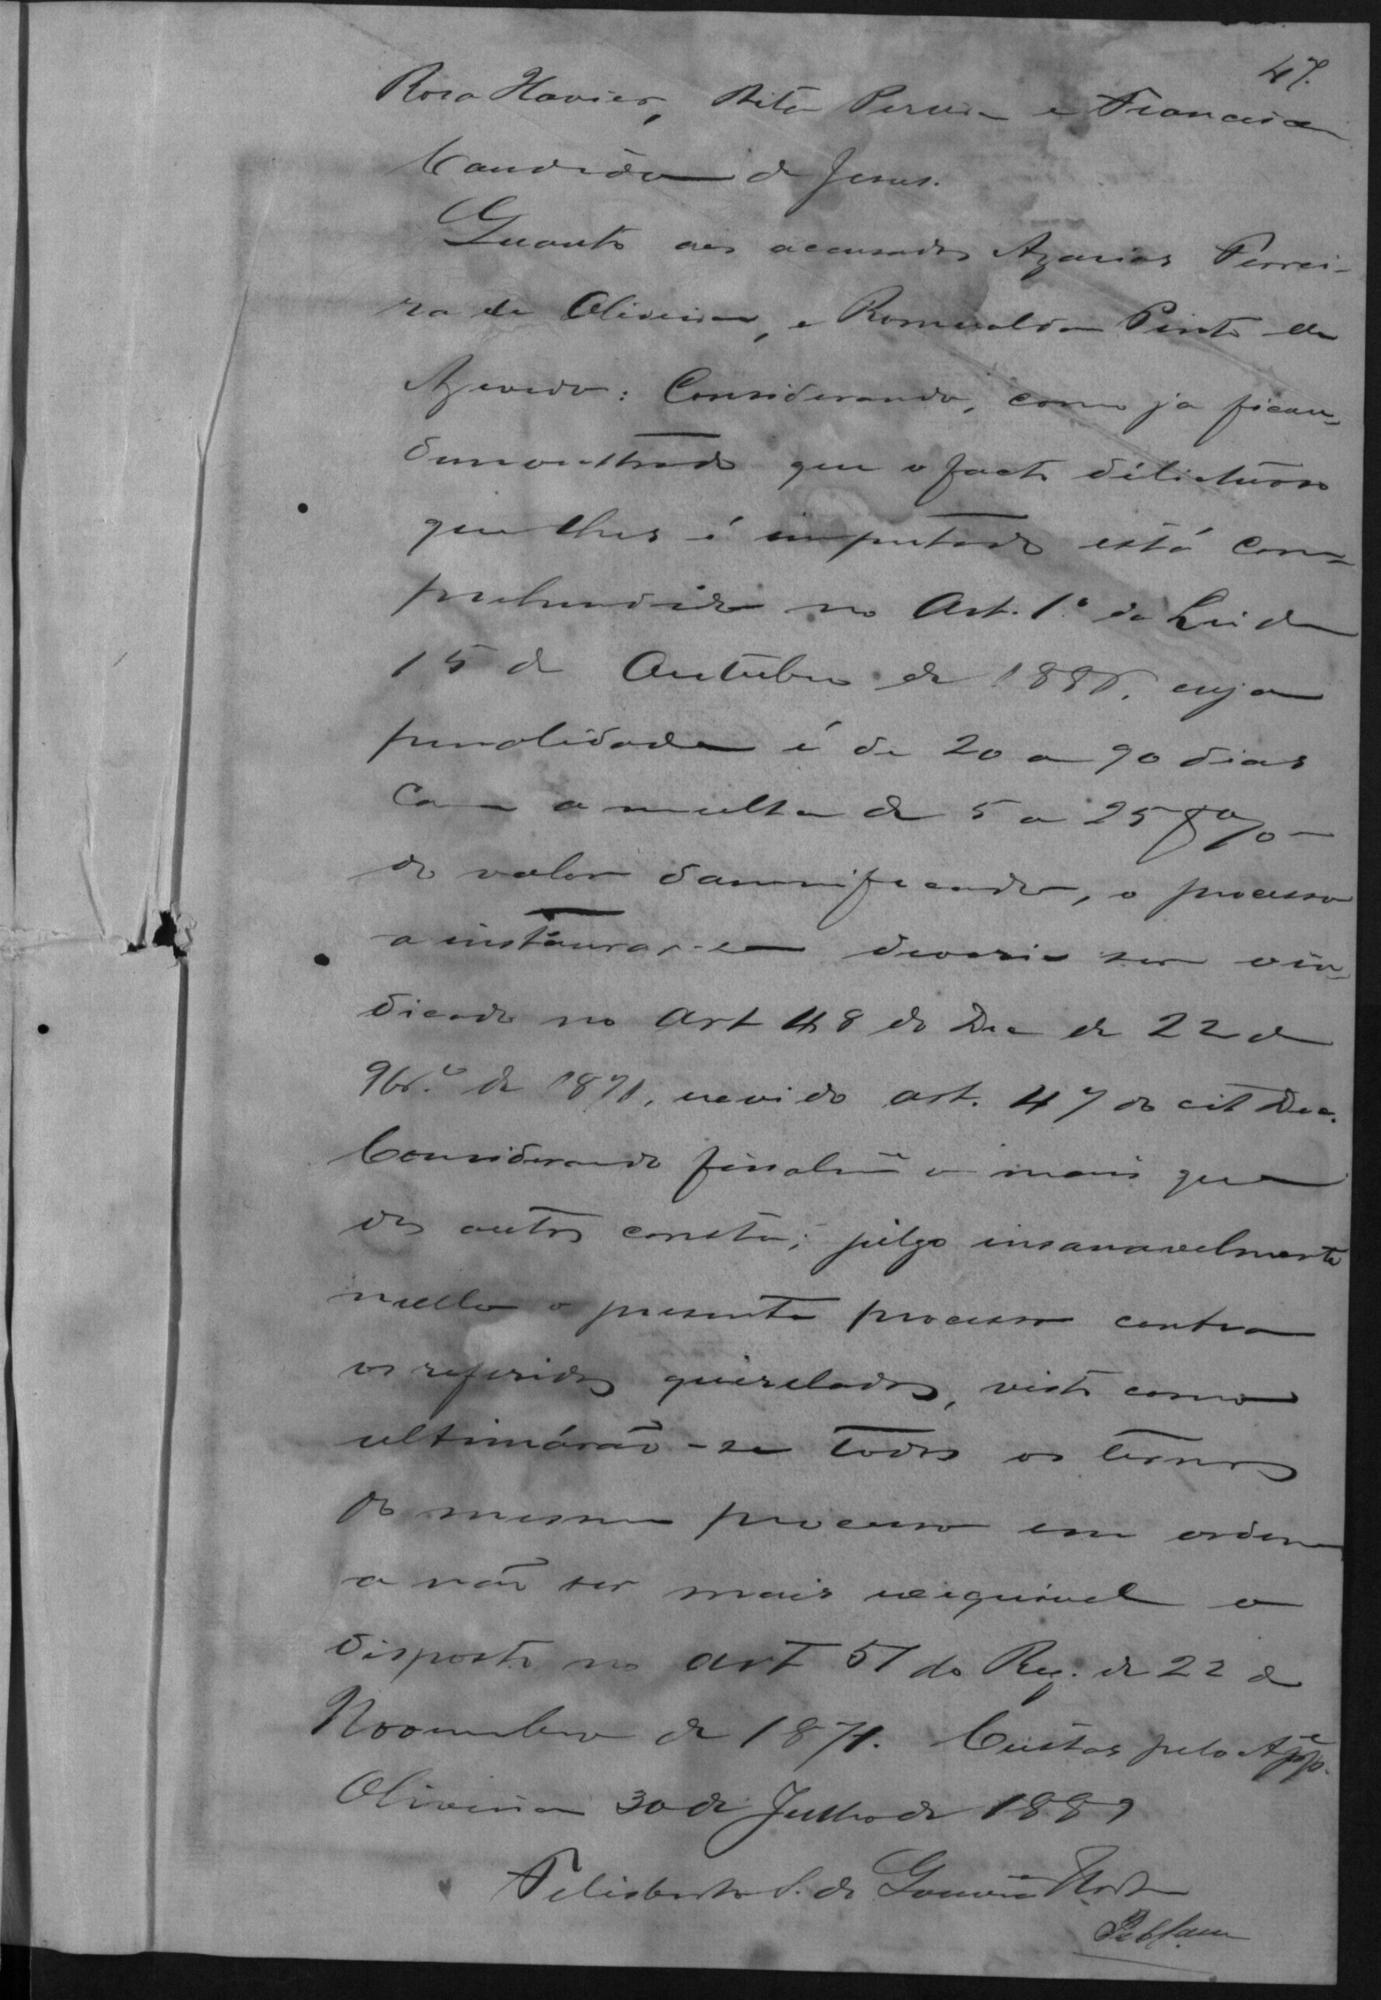 47.
Rosa Xavier, Rita Pereira e Francisca
Candida de Jesus.
Quanto aos accusados Azarias Ferrei-
ra de Oliveira, e Romualdo Pinto de
Azevedo: Considerando, como já ficou
demonstrado que o facto delictuoso
que lhes é imputado está com-
prehendido no Art. 1º da Lei de
15 de Outubro de 1886, cuja
penalidade é de 20 a 90 dias
com a multa de 5 a 25 %
do valor damnificado, o processo
a instaurar-se deveria ser o in-
dicado no art 48 do Dec de 22 de
9br.º de 1871, art. 47 do cit Dec.
Considerando finalmº o mais que
dos autos consta; julgo insanavelmente
nullo o presente processo contra
os referidos querelados, visto como
ultimárão-se todos os termos
do mesmo processo em ordem
a não ser mais exequivel o
disposto no art 51 do Reg. de 22 de
Novembro de 1871. Custas pelo
Oliveira 30 de Julho de 1889
Felisberto S. de Gouvêa Horta